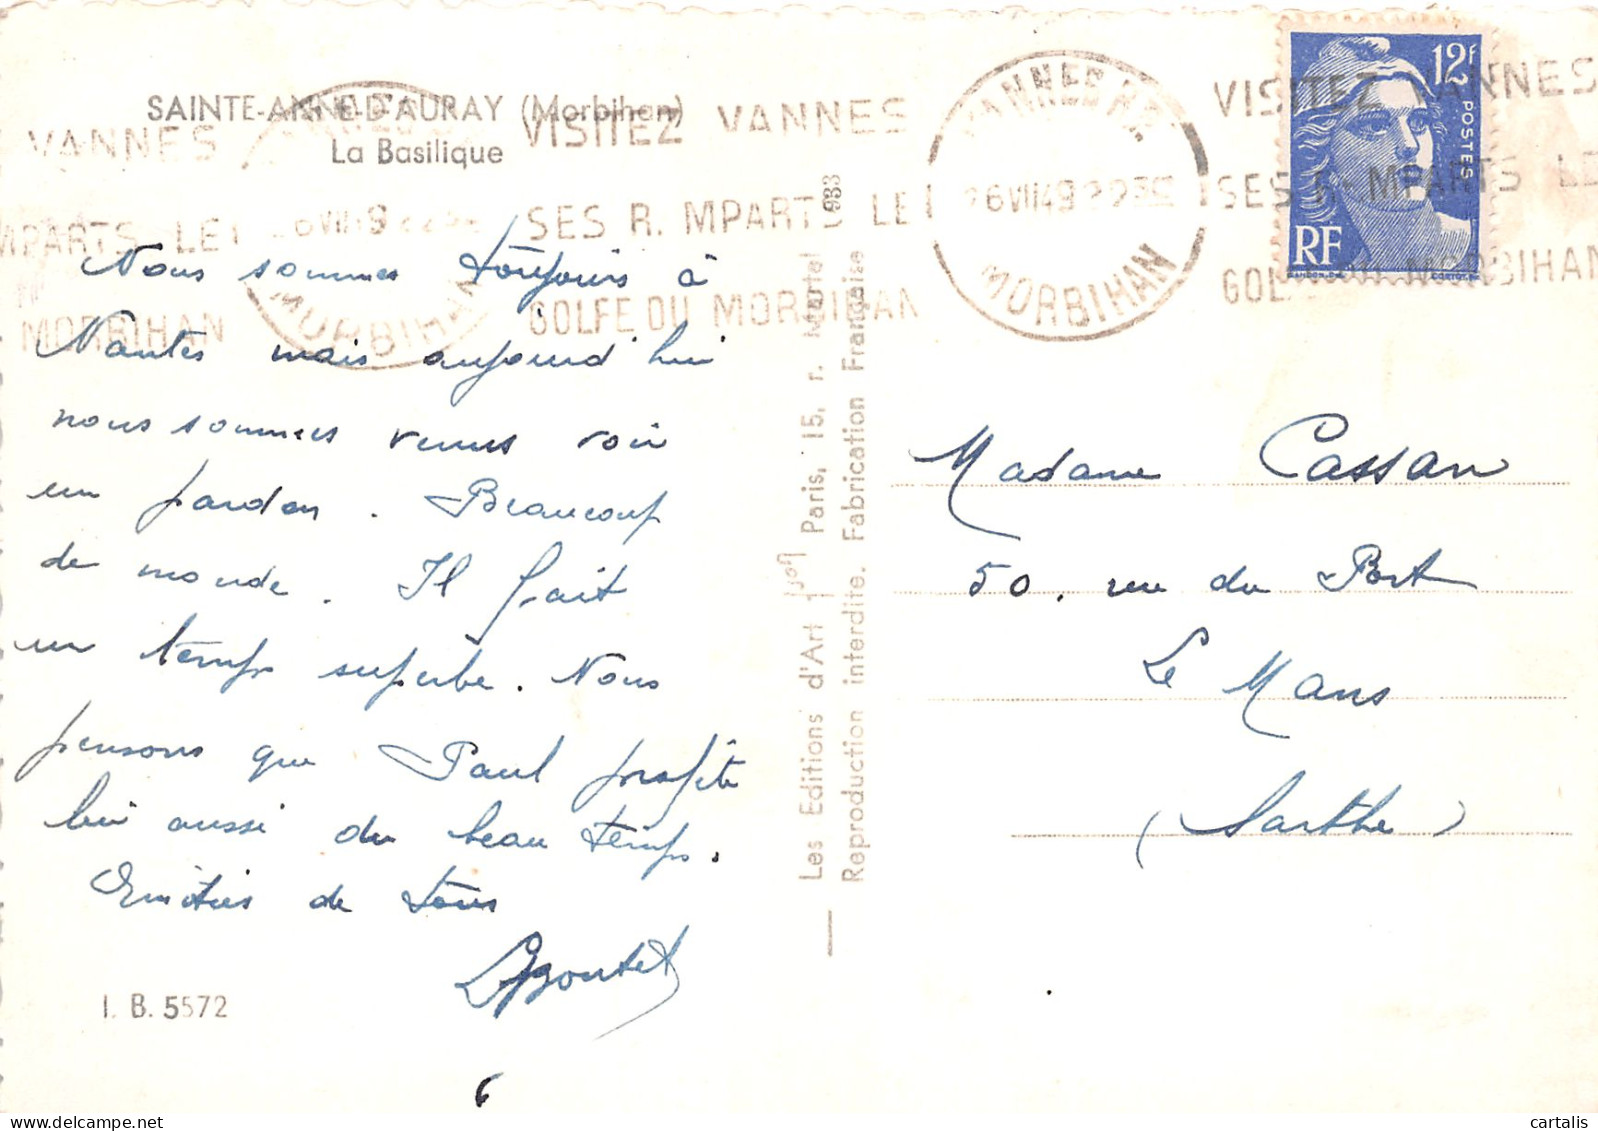 SAINTE-ANNE-D'AURAY (Morbihan)
La Basilique
VANNES
MPARTS LE
MORBIHAN
6 VII 49 22
MORBIHAN
VISITEZ VANNES
SES R. MPARTS LE
GOLFE DU MORBIHAN
VANNES
26 VII 49 22
MORBIHAN
VISITEZ VANNES
SES R. MPARTS LE
GOLFE DU MORBIHAN
12F
POSTES
RF
Nous sommes toujours à
Nantes mais aujourd'hui
nous sommes venus voir
un pardon. Beaucoup
de monde. Il fait
un temps superbe. Nous
pensons que Paul profite
lui aussi du beau temps.
Amitiés de tous
LBoutet
I. B. 5572
Les Editions d'Art Yvon Paris, 15, r. Martel
933
Reproduction interdite. Fabrication Française
Madame Cassan
50, rue du Port
Le Mans
(Sarthe)
cartalis